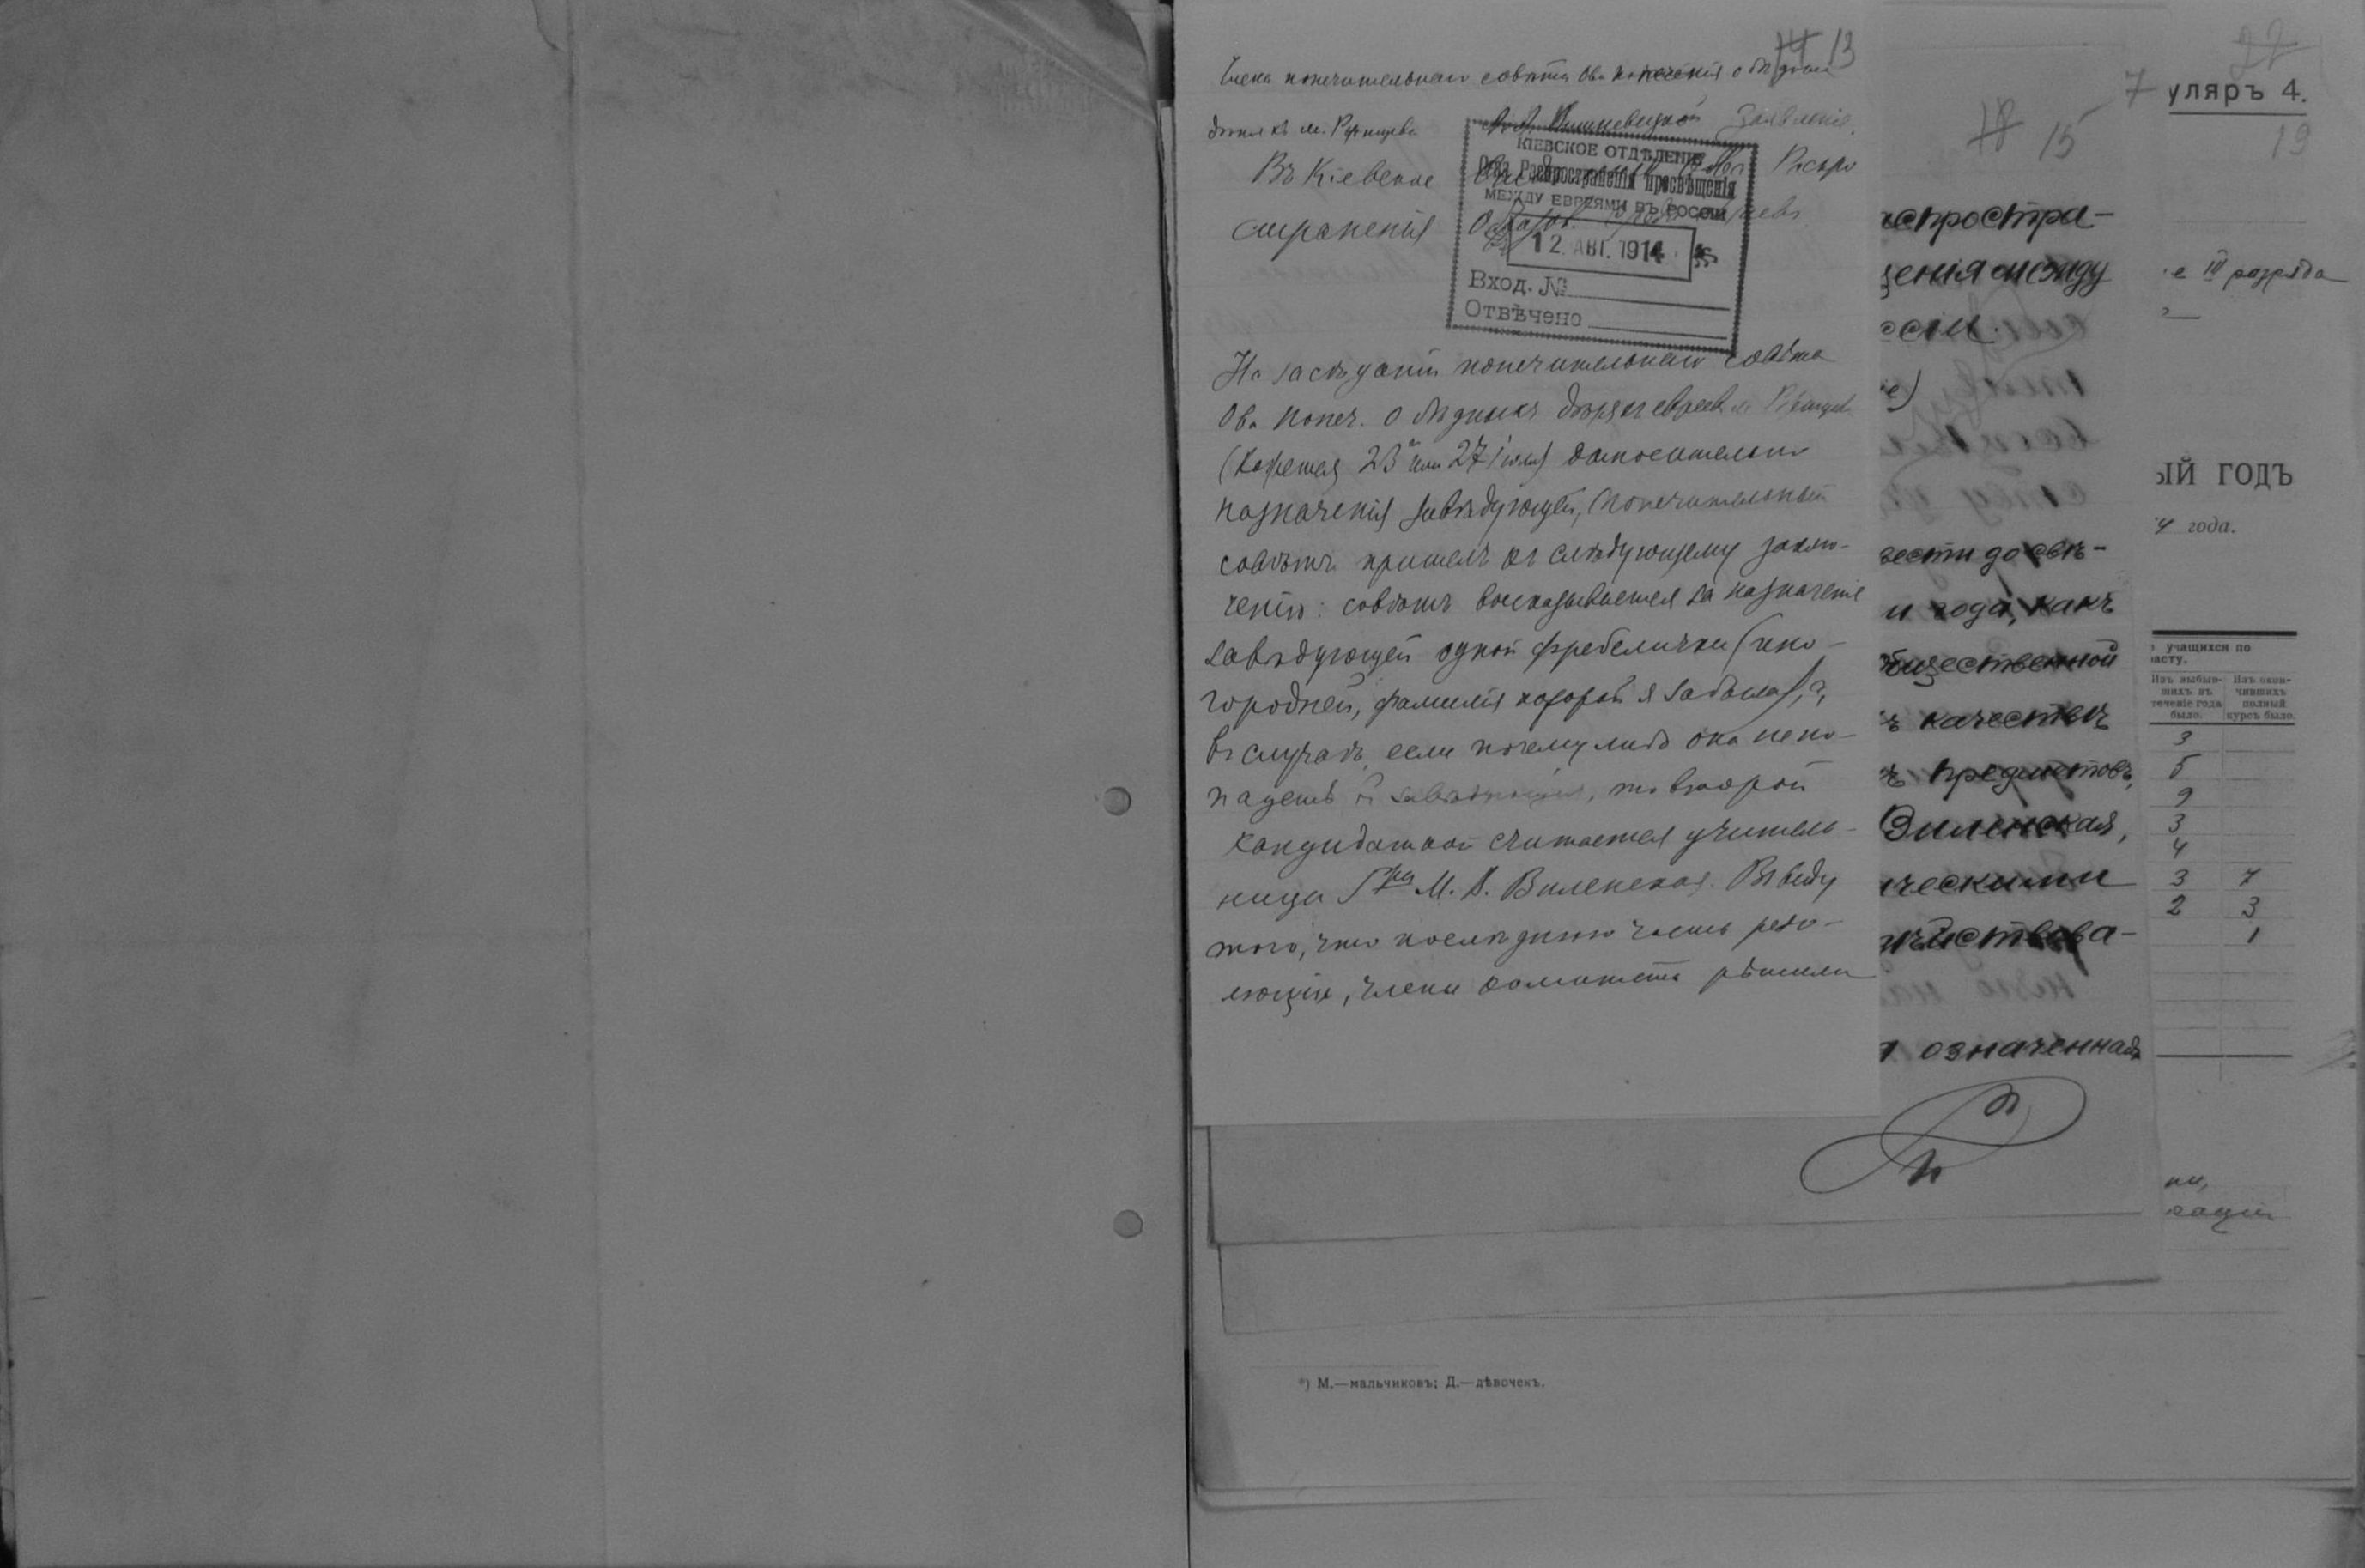 13
Члена попечительнаго совѣта О-ва попеченія о бѣдныхъ
дѣтяхъ м. Ржищева Заявленіе.
Въ Кіевское Отдѣленіе О-ва Распро
страненія
КІЕВСКОЕ ОТДѢЛЕНІЕ
Общ. Распространенія просвѣщенія
МЕЖДУ ЕВРЕЯМИ ВЪ РОССІИ
12 АВГ. 1914
Вход. №
Отвѣчено
На засѣданіи попечительнаго совѣта
О-ва попеч. о бѣдныхъ дѣтяхъ евреевъ м. Ржищева
(кажется 23 или 27 іюля) относительно
назначенія завѣдующей, попечительный
совѣтъ пришелъ къ слѣдующему заклю-
ченію: совѣтъ высказывается за назначеніе
завѣдующей одной фребелички (ино-
городней, фамилія которой я забыла),
въ случаѣ, если почему либо она не по-
падетъ въ завѣдующія, то второй
кандидаткой считается учитель-
ница Г-жа М. В. Виленская. Въ виду
того, что послѣднюю часть резо-
люціи, члены комитета рѣшили
18 15
аспростра-
щенія между
оссіи.
ое)
вести до свѣ-
и года, какъ
общественной
ъ качествъ
ъ предметовъ,
Виленская,
ическими
ъйствова-
я означенная
22
7
уляръ 4.
19
е III разряда
ЫЙ ГОДЪ
4 года.
учащихся по
расту.
Изъ выбыв-
шихъ въ
теченіе года
было.
Изъ окон-
чившихъ
полный
курсъ было.
3
5
9
3
4
3 7
2 3
1
ии,
зацiи
*) М.—мальчиковъ; Д.—дѣвочекъ.